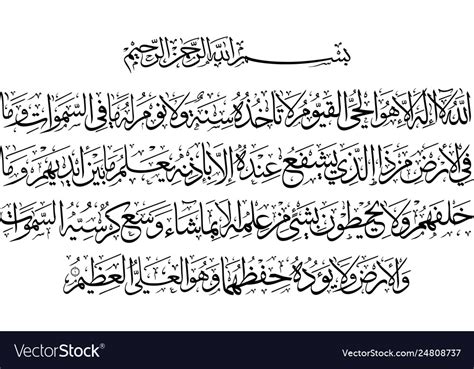 بسم الله الرحمن الرحيم
الله لا إله إلا هو الحي القيوم لا تأخذه سنة ولا نوم له ما في السموات وما
في الأرض من ذا الذي يشفع عنده إلا بإذنه يعلم ما بين أيديهم وما
خلفهم ولا يحيطون بشيء من علمه إلا بما شاء وسع كرسيه السموات
والأرض ولا يؤده حفظهما وهو العلي العظيم
VectorStock® VectorStock.com/24808737